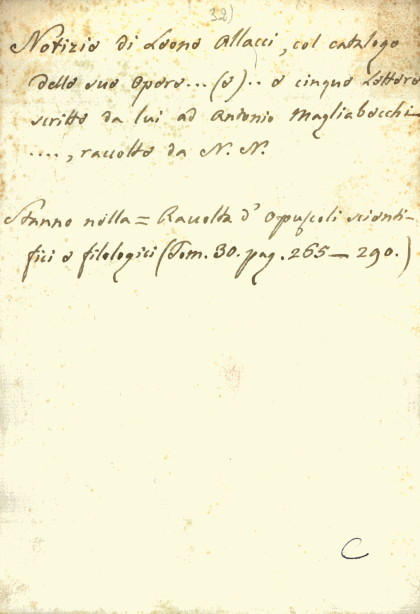 32)
Notizie di Leone Allacci, col catalogo
delle sue opere... (e).. e cinque Lettere
scritte da lui ad Antonio Magliabecchi
...., raccolte da N. N.
Stanno nella = Raccolta d'Opuscoli scienti-
fici e filologici (Tom. 30. pag. 265 — 290.)
C